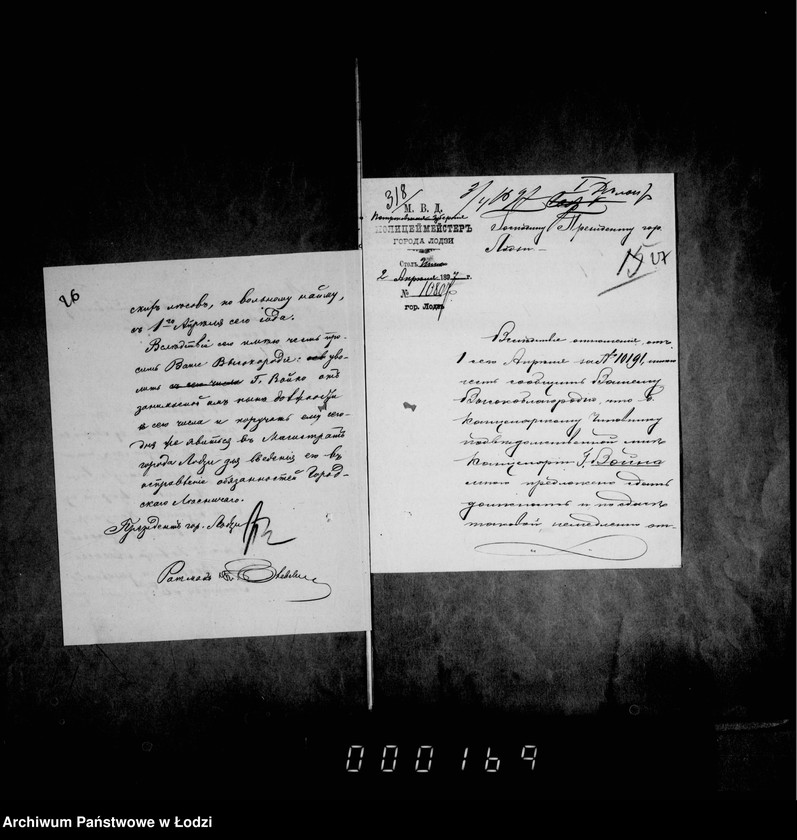 26
скихъ лѣсовъ, по вольному найму,
съ 1го Апрѣля сего года.
Вслѣдствіе сего имѣю честь про-
сить Ваше Высокородіе уво-
лить Г. Войно отъ
занимаемой имъ нынѣ должности
сего числа и поручить ему сего-
дня же явится въ Магистратъ
города Лодзи для введенія его въ
исправленіе обязанностей Город-
скаго Лѣсничаго.
Президентъ гор. Лодзи
Ратманъ
318
М. В. Д.
Петроковская Губернія
ПОЛИЦЕЙМЕЙСТЕРЪ
ГОРОДА ЛОДЗИ
Столъ
2 Апрѣля 1897 г.
№ 10807
гор. Лодзь
Господину Президенту гор.
Лодзи
Вслѣдствіе отношенія отъ
1 сего Апрѣля за № 10191, имѣю
честь сообщить Вашему
Высокоблагородію, что
канцелярскому Чиновнику
подвѣдомственной мнѣ
канцеляріи Г. Войно
мною предложено сдать
должность и
таковой немедленно от-
000169
Archiwum Państwowe w Łodzi